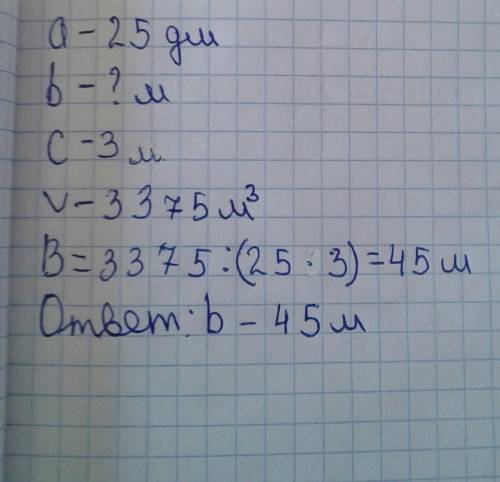 a - 25 дм
b - ? м
c - 3 м.
V - 3375 м³
В = 3375 : (25 · 3) = 45 м
Ответ: b - 45 м